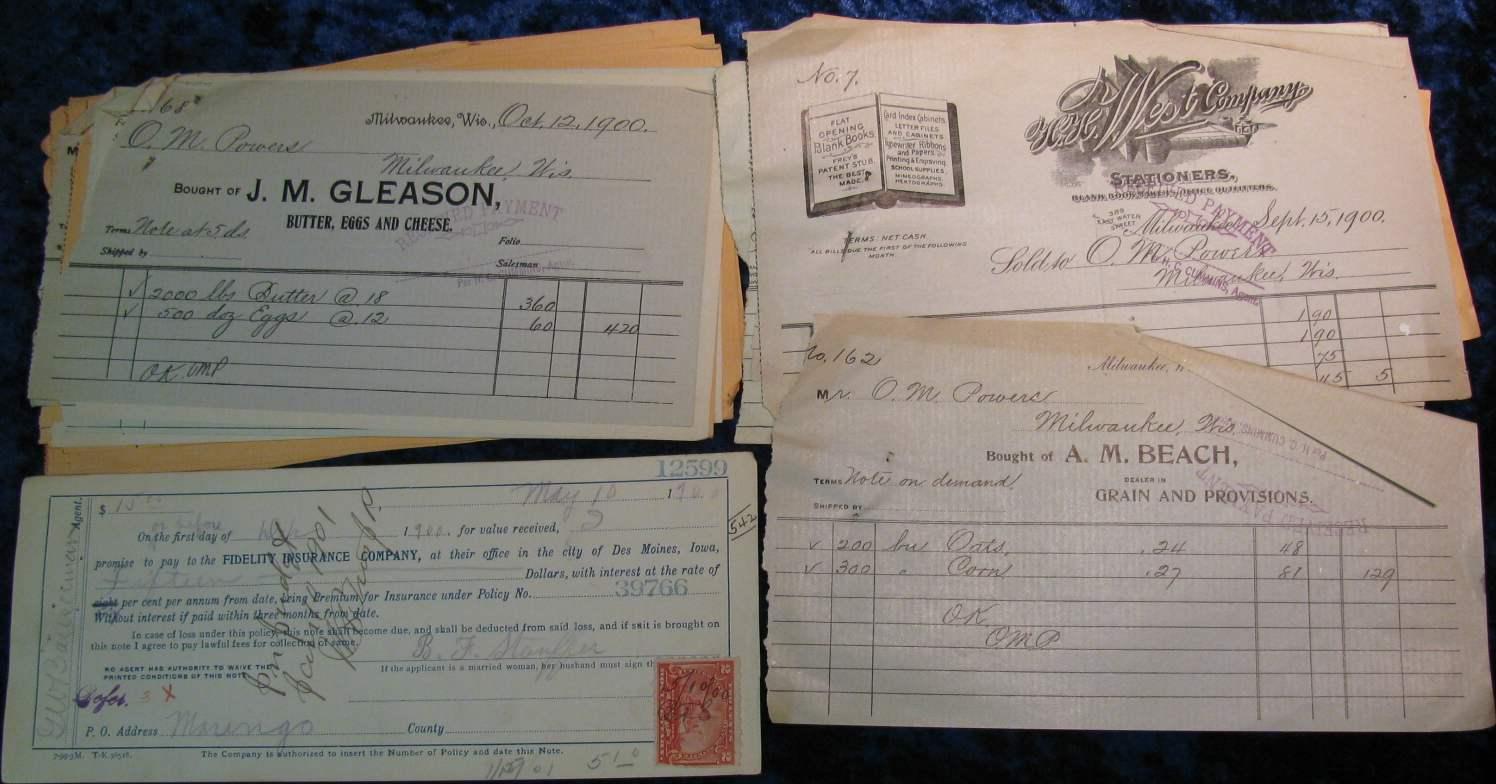 68
Milwaukee, Wis., Oct. 12, 1900.
O. M. Powers
Milwaukee, Wis.
BOUGHT OF J. M. GLEASON,
BUTTER, EGGS AND CHEESE.
Terms Note at 5 ds
Folio
Shipped by
Salesman
RECEIVED PAYMENT
Per H. C. CUMMINS, Agent.
√ 2000 lbs Butter @ 18 360
√ 500 doz Eggs @ .12 60 420
OK OMP
No. 7.
FLAT
OPENING
Blank Books
FREY'S
PATENT STUB
THE BEST
MADE.
Card Index Cabinets
LETTER FILES
AND CABINETS
Typewriter Ribbons
and Papers
Printing & Engraving
SCHOOL SUPPLIES,
MIMEOGRAPHS
HEKTOGRAPHS
H. H. West Company
STATIONERS,
BLANK BOOK MAKERS, OFFICE OUTFITTERS.
TERMS: NET CASH.
ALL BILLS DUE THE FIRST OF THE FOLLOWING
MONTH
EAST WATER
STREET
Milwaukee, Sept. 15, 1900.
RECEIVED PAYMENT
H. C. CUMMINS, Agent.
Sold to O. M. Powers
Milwaukee, Wis.
1 90
1 90
75
45 5
No. 162
Milwaukee,
Mr. O. M. Powers
Milwaukee, Wis.
Per H. C. CUMMINS,
Bought of A. M. BEACH,
DEALER IN
GRAIN AND PROVISIONS.
TERMS Note on demand
SHIPPED BY
RECEIVED PAYMENT
√ 200 bu Oats, .24 48
√ 300 " Corn .27 81 129
OK
OMP
12599
Agent.
$ 15.00 May 10 1900
or before
On the first day of 1900. for value received, I
542
promise to pay to the FIDELITY INSURANCE COMPANY, at their office in the city of Des Moines, Iowa,
Fifteen Dollars, with interest at the rate of
eight per cent per annum from date, being Premium for Insurance under Policy No. 39766
Without interest if paid within three months from date.
In case of loss under this policy, this note shall become due, and shall be deducted from said loss, and if suit is brought on
this note I agree to pay lawful fees for collection of same.
B. F. Stauffer
NO AGENT HAS AUTHORITY TO WAIVE THE
PRINTED CONDITIONS OF THIS NOTE
If the applicant is a married woman, her husband must sign
3 X
P. O. Address Marengo County
7-99-3M. T-K.
The Company is authorized to insert the Number of Policy and date this Note.